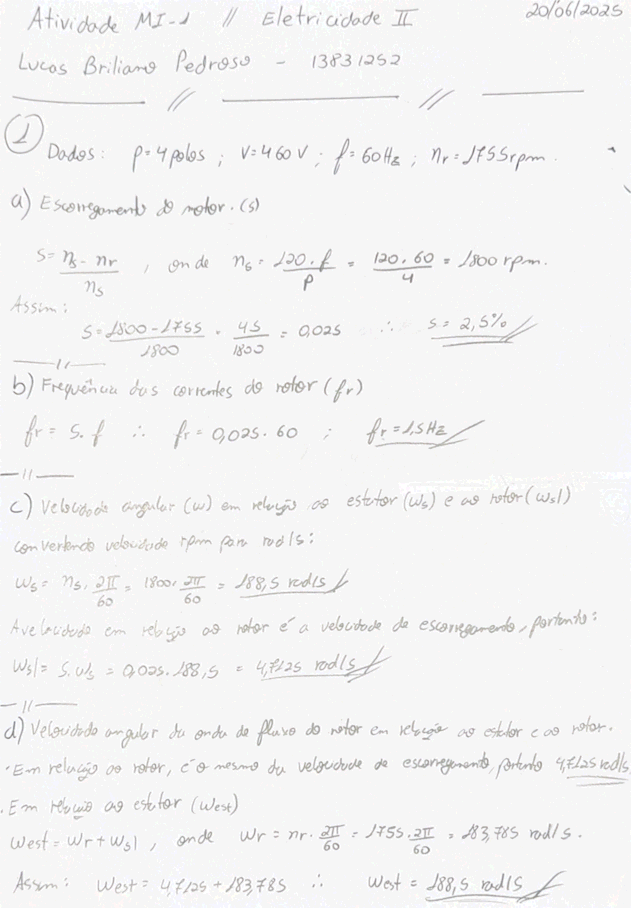 Atividade MI-1 // Eletricidade II 20/06/2025
Lucas Briliano Pedroso - 13831252
1 Dados: p=4 polos ; V=460 V ; f=60Hz ; nr=1755rpm.
a) Escorregamento do rotor. (s)
S= ns - nr / ns , onde ns = 120.f / p = 120.60 / 4 = 1800 rpm.
Assim:
S= 1800-1755 / 1800 = 45 / 1800 = 0,025 ∴ S= 2,5%
b) Frequência das correntes do rotor (fr)
fr = S.f ∴ fr= 0,025.60 ; fr=1,5Hz
c) Velocidade angular (w) em relação ao estator (ws) e ao rotor (wsl)
convertendo velocidade rpm para rad/s:
ws= ns. 2π/60 = 1800. 2π/60 = 188,5 rad/s
A velocidade em relação ao rotor é a velocidade de escorregamento, portanto:
wsl= S.ws = 0,025.188,5 = 4,7125 rad/s
d) Velocidade angular da onda de fluxo do rotor em relação ao estator e ao rotor.
·Em relação ao rotor, é o mesmo da velocidade de escorregamento, portanto 4,7125 rad/s
.Em relação ao estator (west)
west= wr + wsl , onde wr = nr. 2π/60 = 1755. 2π/60 = 183,785 rad/s.
Assim: west= 4,7125 + 183,785 ∴ west = 188,5 rad/s